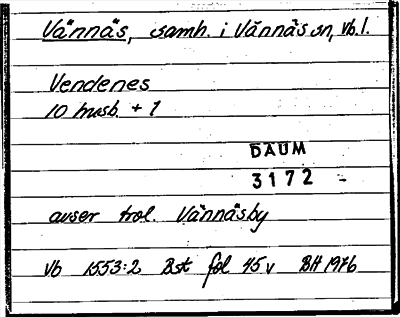 Vännäs, samh. i Vännäs sn, Vb. l.
Vendenes
10 husb. + 1
DAUM
3172
avser trol. Vännäsby
Vb 1553:2 Bst fol 45 v BH 1976